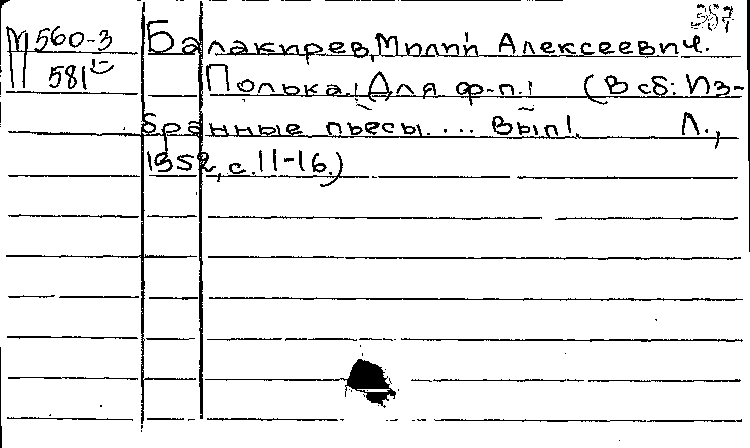 387
М 560-3 Балакирев, Милий Алексеевич.
581 Полька. Для ф-п. (В сб: Из-
бранные пьесы.... Вып. 1. Л.,
1952, с. 11-16.)